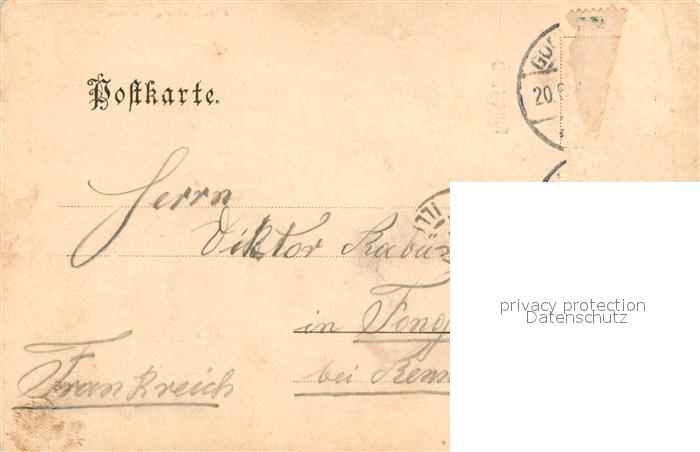 Postkarte.
20.
Herrn
Viktor Rabu
in Foug
bei Renn
Frankreich
privacy protection
Datenschutz